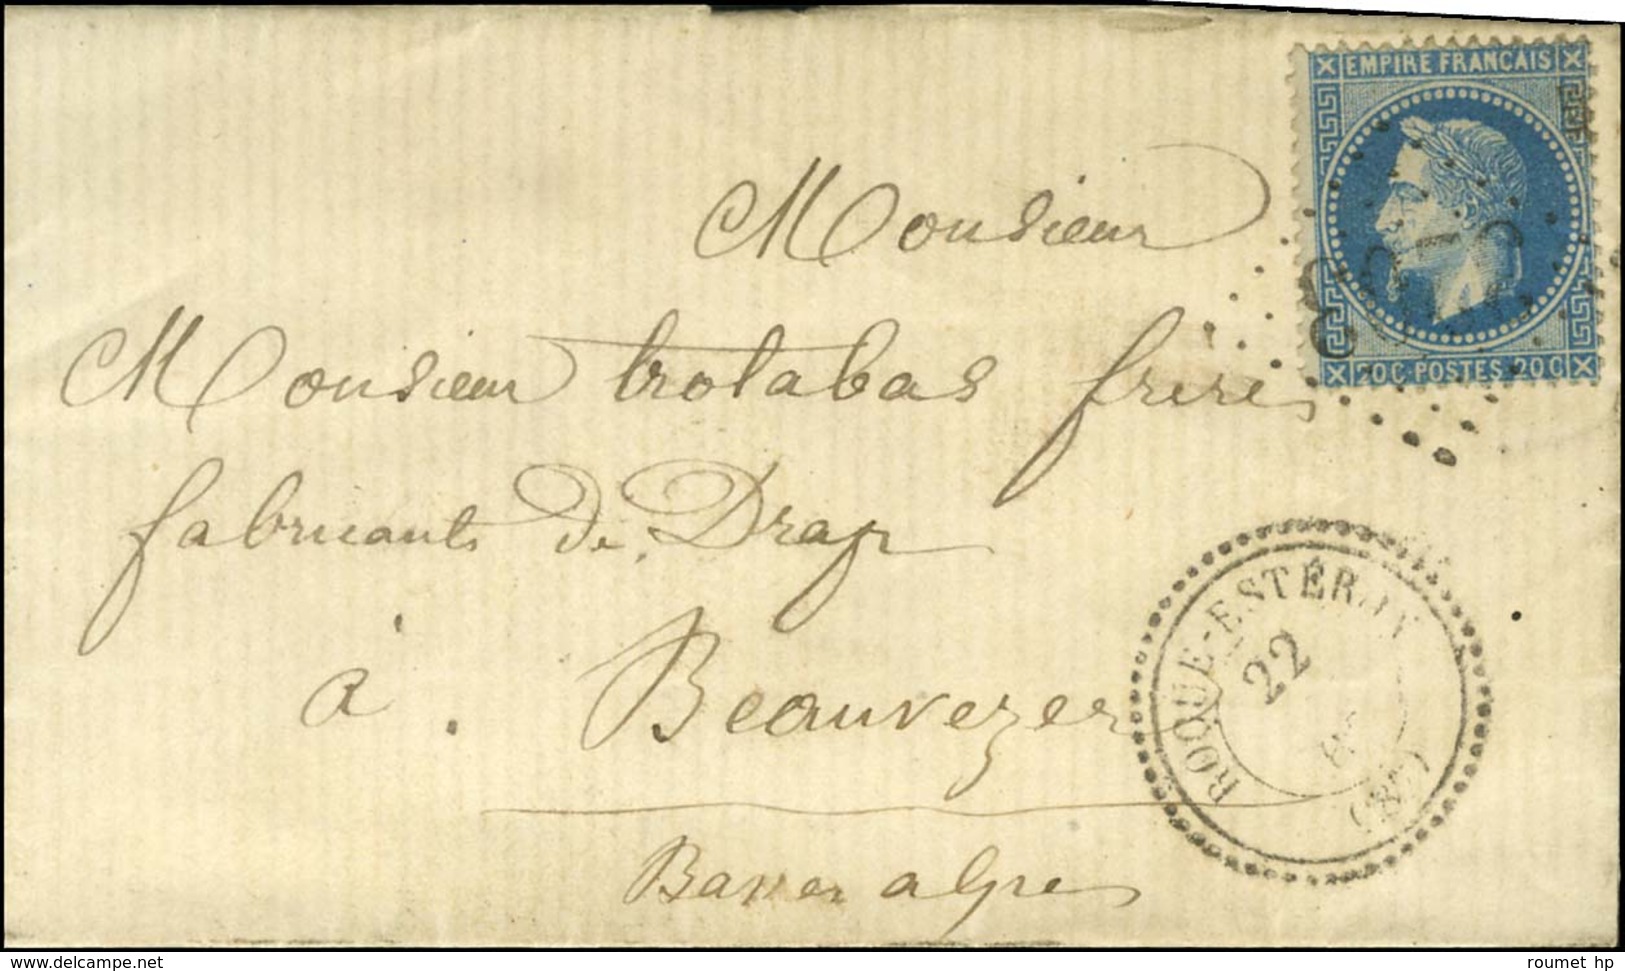 EMPIRE FRANÇAIS
20 C. POSTES 20 C
Monsieur
Monsieur trotabas freres
fabricants de Drap
à Beauvezer
Basses alpes
ROQUE-ESTÉRON
22
(87)
www.delcampe.net
roumet hp